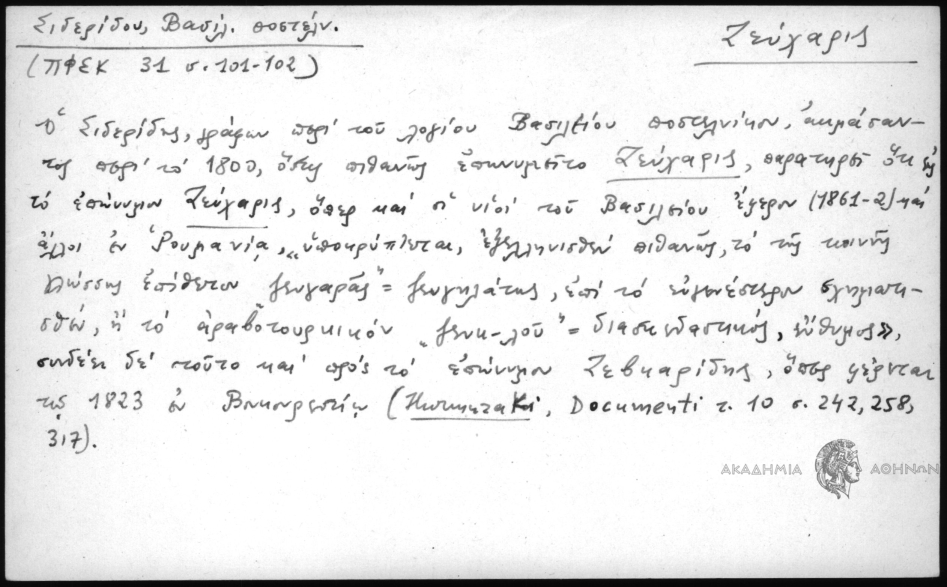 Σιδερίδου, Βασιλ. ποστέλν.
Ζεύχαρις
(ΠΦΣΚ 31 σ. 101-102)
Ὁ Σιδερίδης, γράφων περὶ τοῦ λογίου Βασιλείου ποστελνίκου, ἀκμάσαν-
τος περὶ τὸ 1800, ὅστις πιθανῶς ἐπωνυμεῖτο Ζεύχαρις, παρατηρεῖ ὅτι εἰς
τὸ ἐπώνυμον Ζεύχαρις, ὅπερ καὶ οἱ υἱοὶ τοῦ Βασιλείου ἔφερον (1861-2) καὶ
ἄλλοι ἐν Ῥουμανίᾳ, „ὑποκρύπτεται, ἐξελληνισθὲν πιθανῶς, τὸ τῆς κοινῆς
γλώσσης ἐπίθετον „ζευγαρᾶς" = ζευγηλάτης, ἐπὶ τὸ εὐγενέστερον σχηματι-
σθέν, ἢ τὸ ἀραβοτουρκικὸν „ζευκ-λοῦ" = διασκεδαστικός, εὔθυμος»,
συνδέει δὲ τοῦτο καὶ πρὸς τὸ ἐπώνυμον Ζεβκαρίδης, ὅπερ φέρεται
τις 1823 ἐν Βουκουρεστίῳ (Hurmuzaki, Documenti τ. 10 σ. 242, 258,
317).
ΑΚΑΔΗΜΙΑ ΑΘΗΝΩΝ